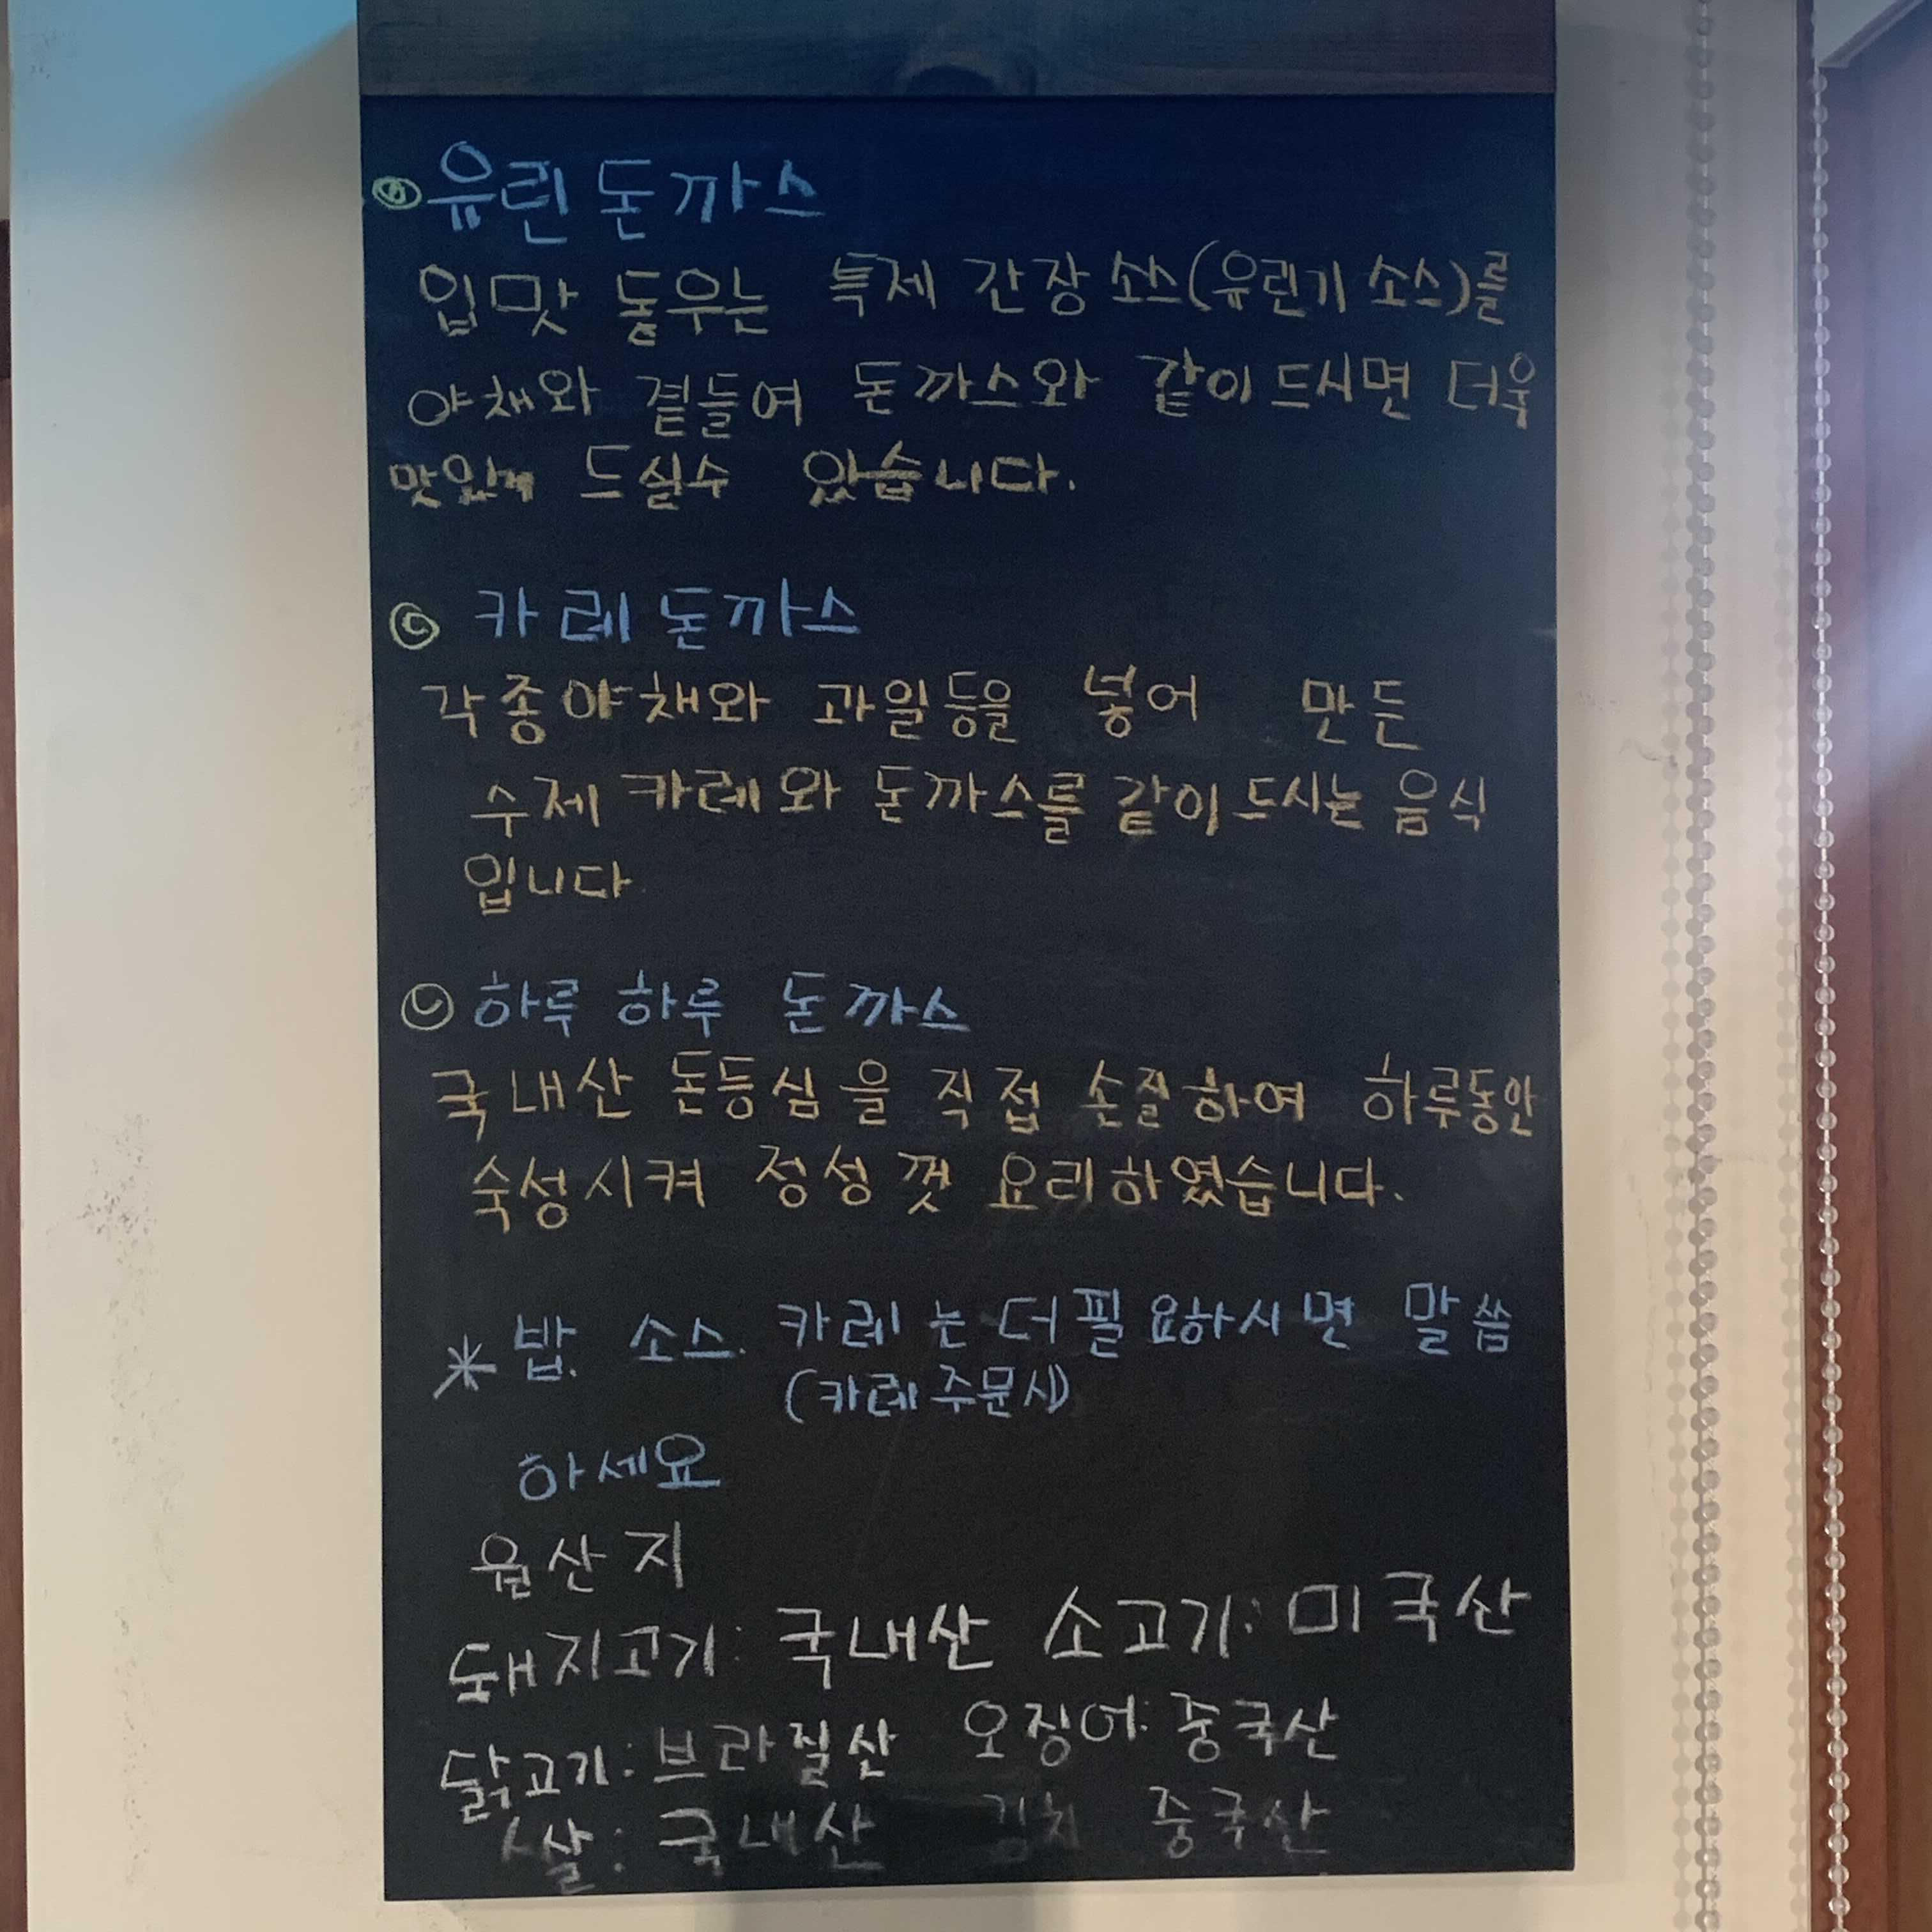 유린 돈까스
입맛 돋우는 특제 간장 소스(유린기 소스)를
야채와 곁들여 돈까스와 같이 드시면 더욱
맛있게 드실수 있습니다.
카레 돈까스
각종야채와 과일등을 넣어 만든
수제 카레와 돈까스를 같이 드시는 음식
입니다
하루 하루 돈까스
국내산 돈등심을 직접 손질하여 하루동안
숙성시켜 정성껏 요리하였습니다.
* 밥. 소스. 카레는 더 필요하시면 말씀
(카레 주문시)
하세요
원산지
돼지고기: 국내산 소고기: 미국산
닭고기: 브라질산 오징어: 중국산
쌀: 국내산 김치 중국산